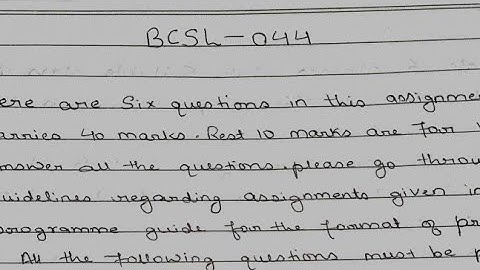 BCSL-044
ere are Six questions in this assignme
arries 40 marks. Rest 10 marks are for
answer all the questions. please go throu
uidelines regarding assignments given in
programme guide for the format of pr
. All the following questions must be p